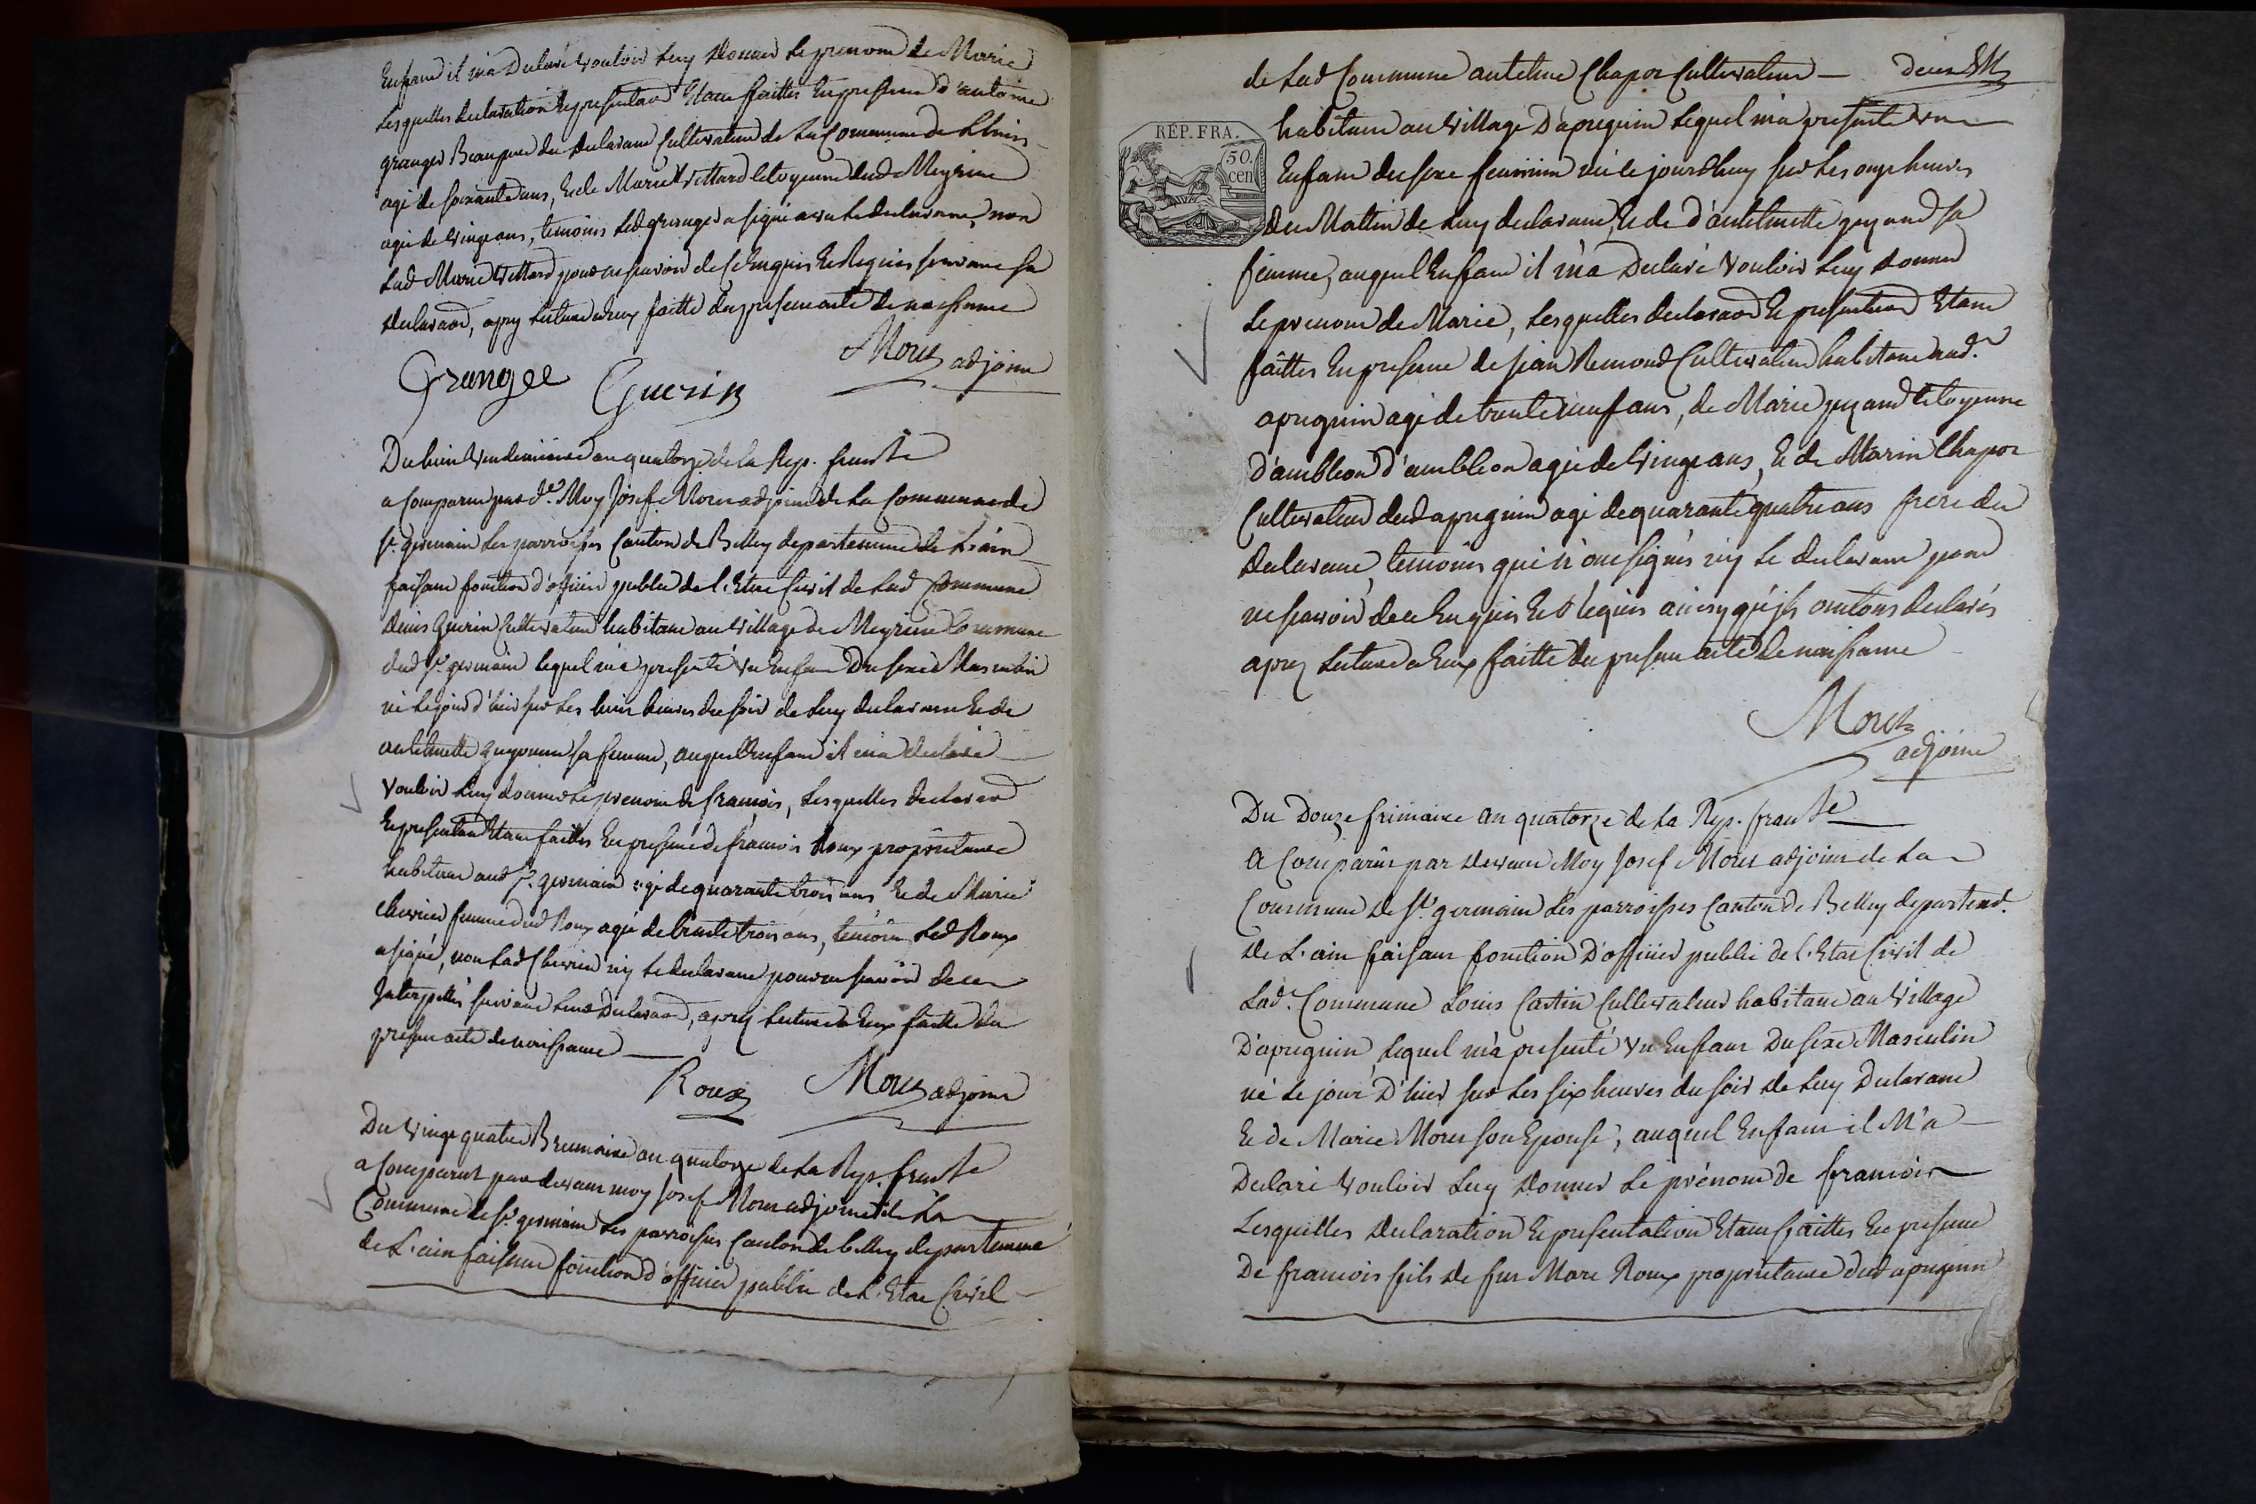 Enfant il m'a Declaré vouloir luy donner le prenom de Marie
Lesquelles declaration Et presentaon Etant faittes En presence d'antoine
granger Beaupere du declarant Cultivateur de la Commune de
agé de soixante ans, Et de Marie Vettard Citoyenne dud Meyrieu
agée de vingt ans, temoins led granger a signé avec le declarant, non
lad Marie Vettard pour ne savoir de ce Enquis Et Requis suivant sa
declaraon, apres lecture a Eux faitte du present acte de naissance
Granger Guerin Morel adjoint
Du huit vendemiaire an quatorze de la Rep. franse
a Comparu par dt Moy Josef Morel adjoint de la Commune de
st germain les parroisses Canton de Belley departement de L'ain
faisant fonction d'officier public de l'Etat Civil de lad Commune
denis Guerin Cultivateur habitant au village de Meyrieu Commune
dud st germain lequel m'a presenté un Enfant Du sexe Masculin
né le jour d'hier sur les huit heures du soir de luy declarant Et de
anthelmette sa femme, auquel Enfant il m'a declaré
Vouloir luy donner le prenom de francois, Lesquelles declaraon
Et presentaon Etant faittes En presence de francois Roux propriétaire
habitant aud st germain agé de quarante trois ans Et de Marie
Chevrier femme dud Roux agée de trente trois ans, temoins led Roux
a signé, non lad Chevrier ny le declarant pour ne savoir de ce
Interpellés suivant leur Declaraon, apres lecture a Eux faitte du
present acte de naissance
Roux Morel adjoint
Du vingt quatre Brumaire an quatorze de la Rep. franse
a Comparut par devant moy Josef Morel adjoint de la
Commune de st germain les parroisses Canton de belley departement
de L'ain faisant fonction d'officier public de L'Etat Civil
de lad Commune antelme Chapot Cultivateur
REP. FRA.
50.
cen
habitant au village D'apregnin lequel m'a presenté une
Enfant du sexe feminin né le jourdhuy sur les onze heures
du Mattin de luy declarant, Et de d'anthelmette sa
femme, auquel Enfant il m'a Declaré Vouloir luy donner
le prenom de Marie, Lesquelles declaraon Et presentaon Etant
faittes En presence de jean Remond Cultivateur habitant aud.
apregnin agé de trente neuf ans, de Marie Citoyenne
D'ambleon d'ambleon agée de vingt ans, Et de Marin Chapot
Cultivateur dud apregnin agé de quarante quatre ans frere du
declarant, temoins qui n'ont signés ny le declarant pour
ne savoir de ce Enquis Et Requis ainsy qu'ils ont tous declarés
apres lecture a Eux faitte du present acte de naissance
Morel
adjoint
Du Douze frimaire an quatorze de la Rep. franse
A Comparut par devant Moy Josef Morel adjoint de la
Commune de st germain les parroisses Canton de Belley departemt.
de L'ain faisant fonction D'officier public de l'Etat Civil de
lad. Commune Louis Castin Cultivateur habitant au village
D'apregnin, lequel m'a presenté un Enfant Du sexe Masculin
né le jour D'hier sur les six heures du soir de luy Declarant
Et de Marie Morel son Epouse, auquel Enfant il M'a
Declaré vouloir luy donner le prénom de francois
Lesquelles declaration Et presentation Etant faittes En presence
De francois fils de feu Marc Roux propriétaire dud apregnin